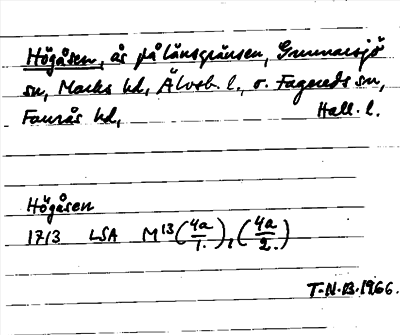 Högåsen, ås på länsgränsen, Gunnarsjö
sn, Marks hd, Älvsb. l., o. Fagereds sn,
Faurås hd, Hall. l.
Högåsen
1713 LSA M13 (4a/1.), (4a/2.)
T.N.B. 1966.